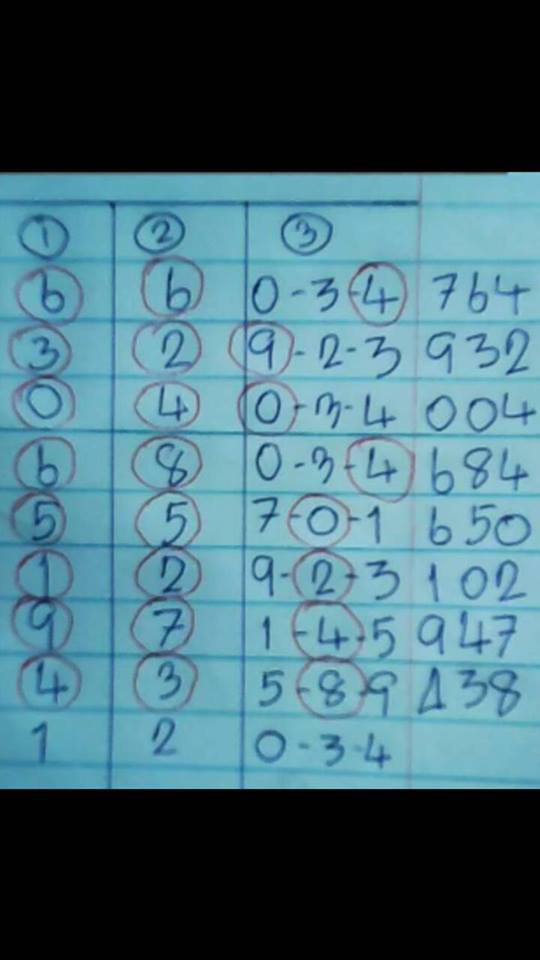 ① ② ③
6 6 0-3-4 764
3 2 9-2-3 932
0 4 0-3-4 004
6 8 0-3-4 684
5 5 7-0-1 650
1 2 9-2-3 102
9 7 1-4-5 947
4 3 5-8-9 438
1 2 0-3-4